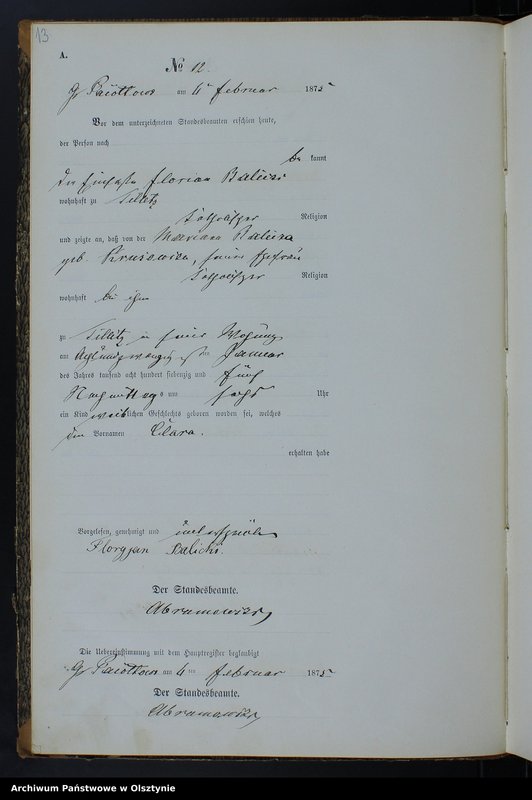 13
A.
No 12.
Gr Pacòltowo am 6ten februar 1875
Vor dem unterzeichneten Standesbeamten erschien heute,
der Person nach
be kannt
der Florian Balicki
wohnhaft zu Tillitz
katholischer Religion
und zeigte an, daß von der Mariana Balicka
geb. seiner Ehefrau
katholischer Religion
wohnhaft bei ihm
zu Tillitz in seiner Wohnung
am Achtundzwanzigsten Januar
des Jahres tausend acht hundert siebenzig und fünf
Nachmittags um sechs Uhr
ein Kind weiblichen Geschlechts geboren worden sei, welches
den Vornamen Clara.
erhalten habe
Vorgelesen, genehmigt und unterschrieben
Floryjan Balicki.
Der Standesbeamte.
Abramowski
Die Uebereinstimmung mit dem Hauptregister beglaubigt
Gr Pacòltowo am 6ten februar 1875
Der Standesbeamte.
Abramowski
Archiwum Państwowe w Olsztynie